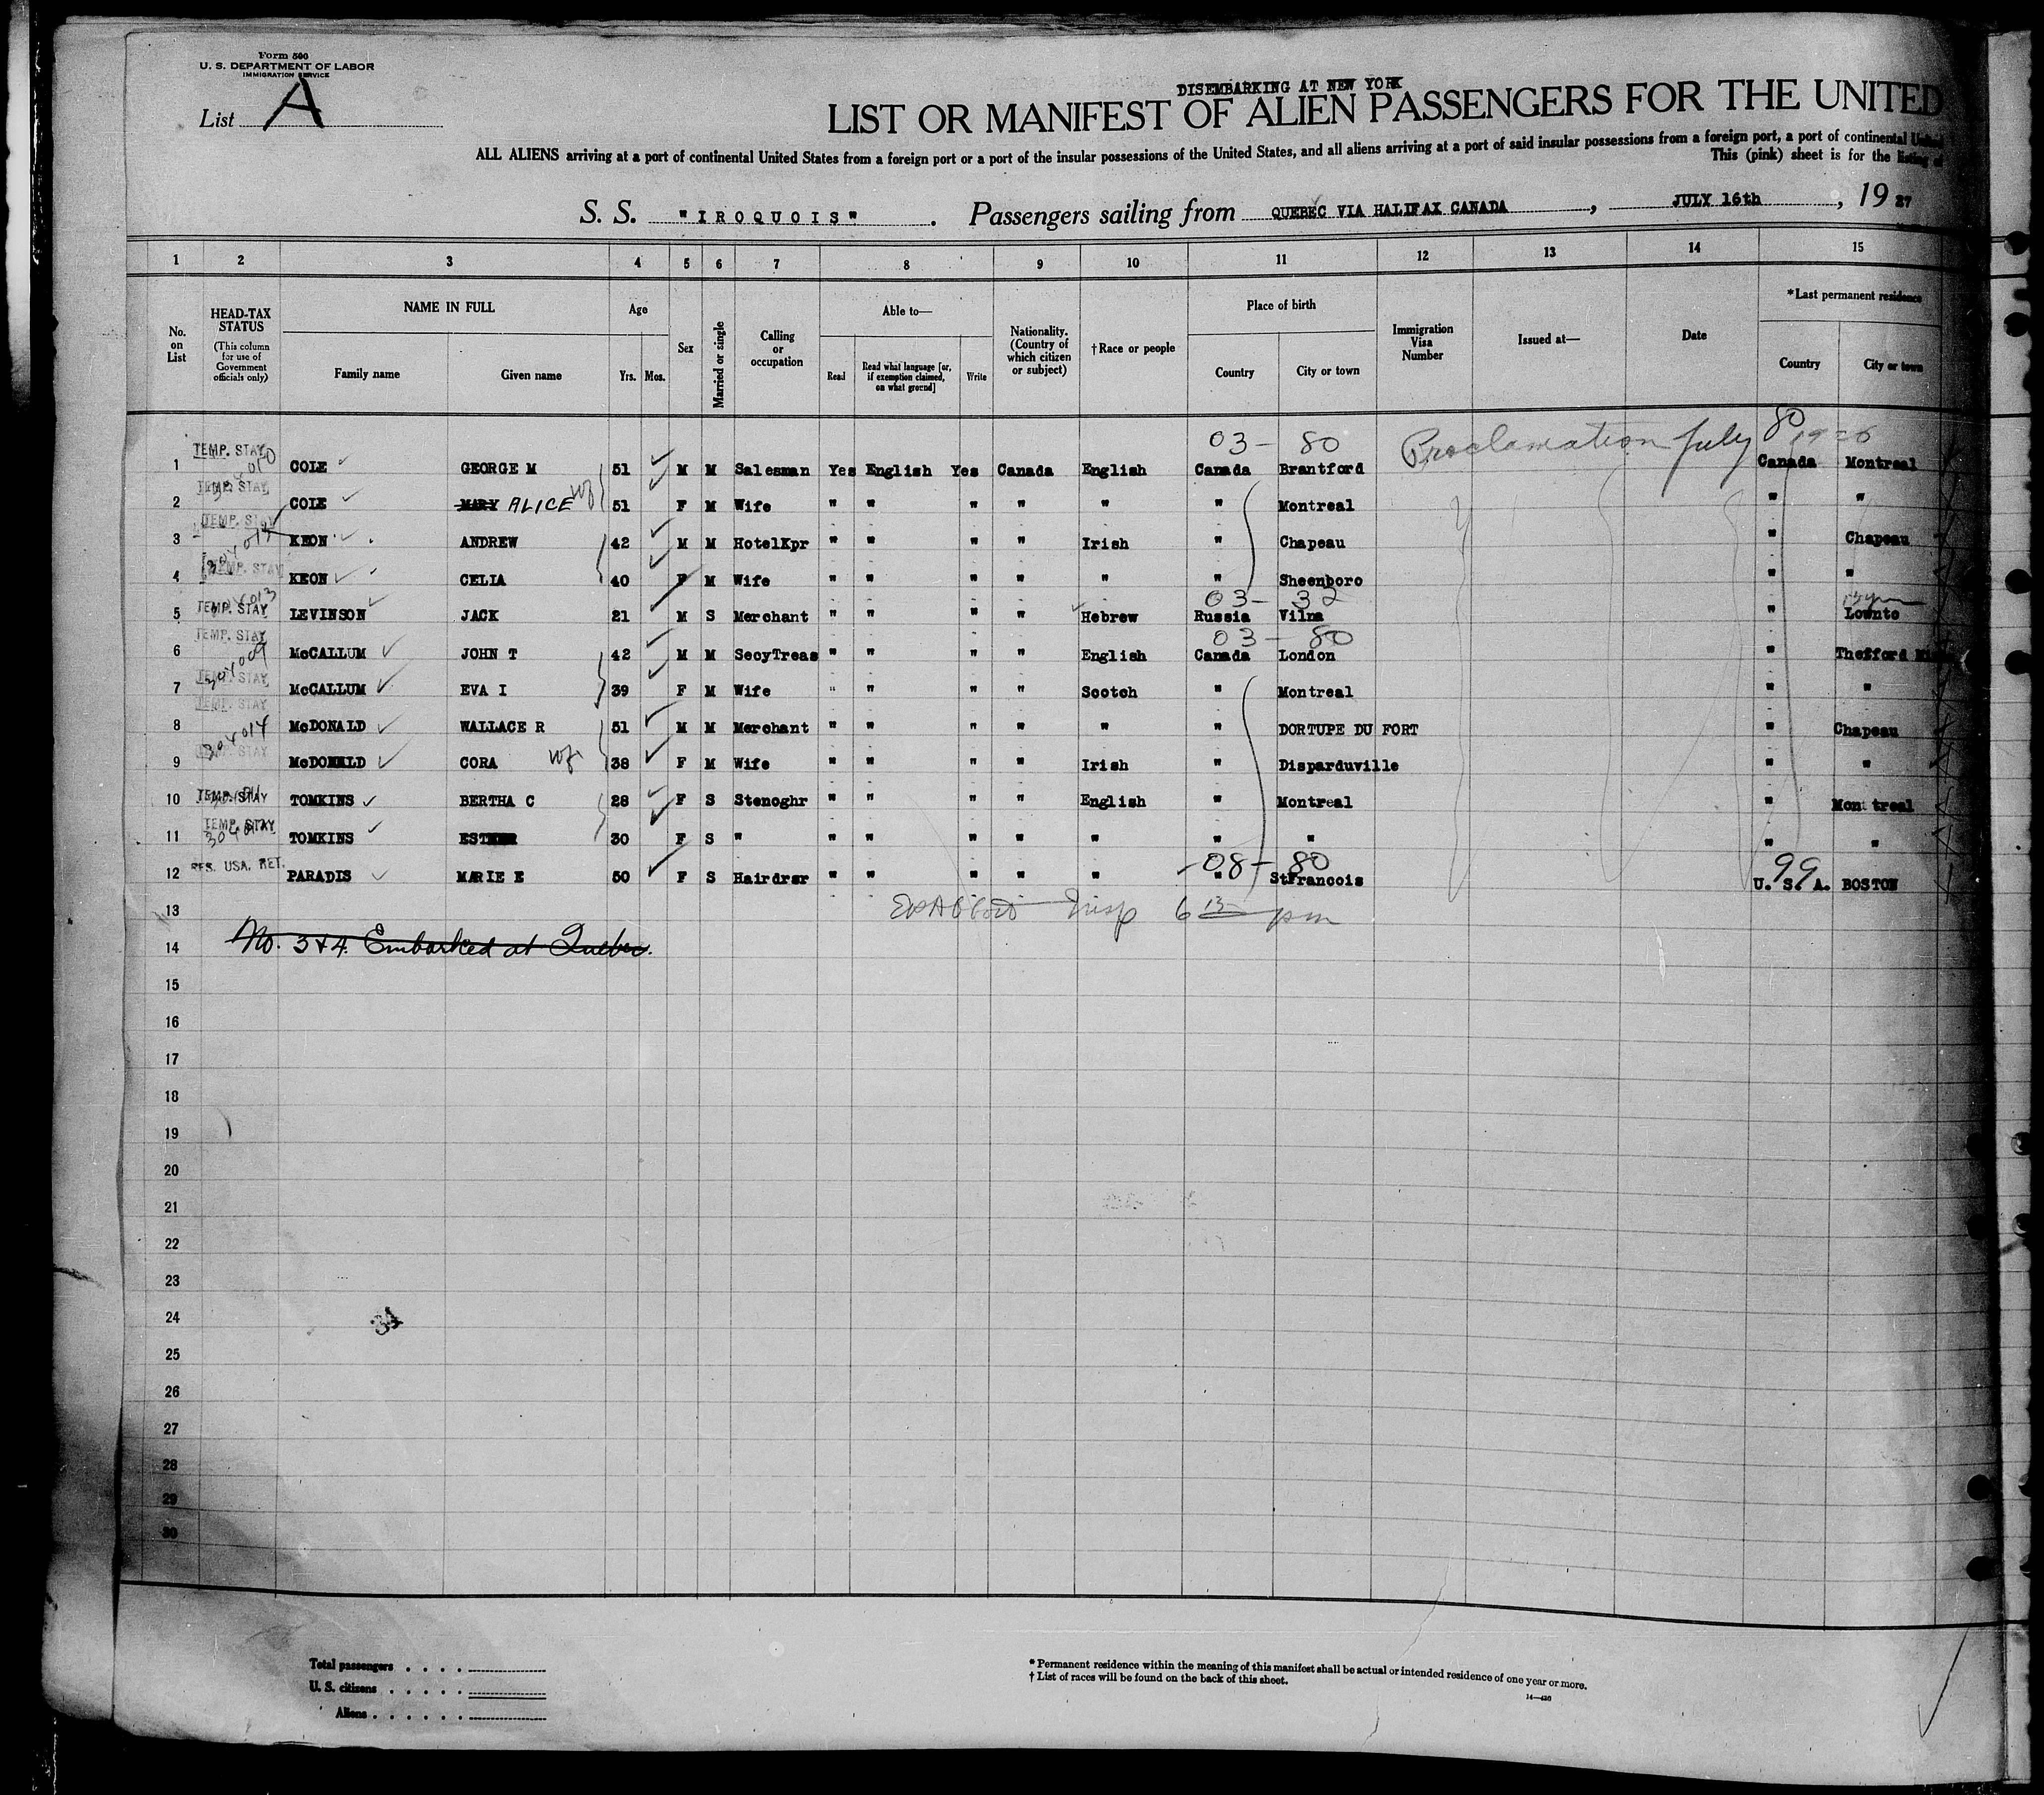 Form 500
U. S. DEPARTMENT OF LABOR
IMMIGRATION SERVICE
List A
DISEMBARKING AT NEW YORK
LIST OR MANIFEST OF ALIEN PASSENGERS FOR THE UNITED
ALL ALIENS arriving at a port of continental United States from a foreign port or a port of the insular possessions of the United States, and all aliens arriving at a port of said insular possessions from a foreign port, a port of continental United
This (pink) sheet is for the listing of
S. S. "IROQUOIS". Passengers sailing from QUEBEC VIA HALIFAX CANADA, JULY 16th, 19 27
1 2 3 4 5 6 7 8 9 10 11 12 13 14 15
No. on List
HEAD-TAX STATUS (This column for use of Government officials only)
NAME IN FULL Family name Given name
Age Yrs. Mos.
Sex
Married or single
Calling or occupation
Able to— Read Read what language [or, if exemption claimed, on what ground] Write
Nationality. (Country of which citizen or subject)
†Race or people
Place of birth Country City or town
Immigration Visa Number
Issued at—
Date
*Last permanent residence Country City or town
03- 80 Proclamation July 1926 80
1 TEMP. STAY COLE GEORGE M 51 M M Salesman Yes English Yes Canada English Canada Brantford Canada Montreal
2 TEMP. STAY COLE MARY ALICE wf 51 F M Wife " " " " " " Montreal " "
3 TEMP. STAY KEON ANDREW 42 M M HotelKpr " " " " Irish " Chapeau " Chapeau
4 TEMP. STAY KEON CELIA 40 F M Wife " " " " " " Sheenboro " "
03- 32
5 TEMP. STAY LEVINSON JACK 21 M S Merchant " " " " Hebrew Russia Vilna " Lownto
03- 80
6 TEMP. STAY 304009 McCALLUM JOHN T 42 M M SecyTreas " " " " English Canada London " Thefford
7 TEMP. STAY McCALLUM EVA I 39 F M Wife " " " " Scotch " Montreal " "
8 TEMP. STAY 304014 McDONALD WALLACE R 51 M M Merchant " " " " " " DORTUPE DU FORT " Chapeau
9 TEMP. STAY McDONALD CORA wf 38 F M Wife " " " " Irish " Disparduville " "
10 TEMP. STAY TOMKINS BERTHA C 28 F S Stenoghr " " " " English " Montreal " Montreal
11 TEMP. STAY TOMKINS ESTHER 30 F S " " " " " " " " " "
08- 80 99
12 RES. USA. RET. PARADIS MARIE E 50 F S Hairdrsr " " " " " " StFrancois U. S. A. BOSTON
13 Insp 6 13 pm
14 No. 3 & 4. Embarked at Quebec.
15
16
17
18
19
20
21
22
23
24 34
25
26
27
28
29
30
Total passengers . . . .
U. S. citizens . . . . .
Aliens . . . . . .
* Permanent residence within the meaning of this manifest shall be actual or intended residence of one year or more.
† List of races will be found on the back of this sheet.
14—430